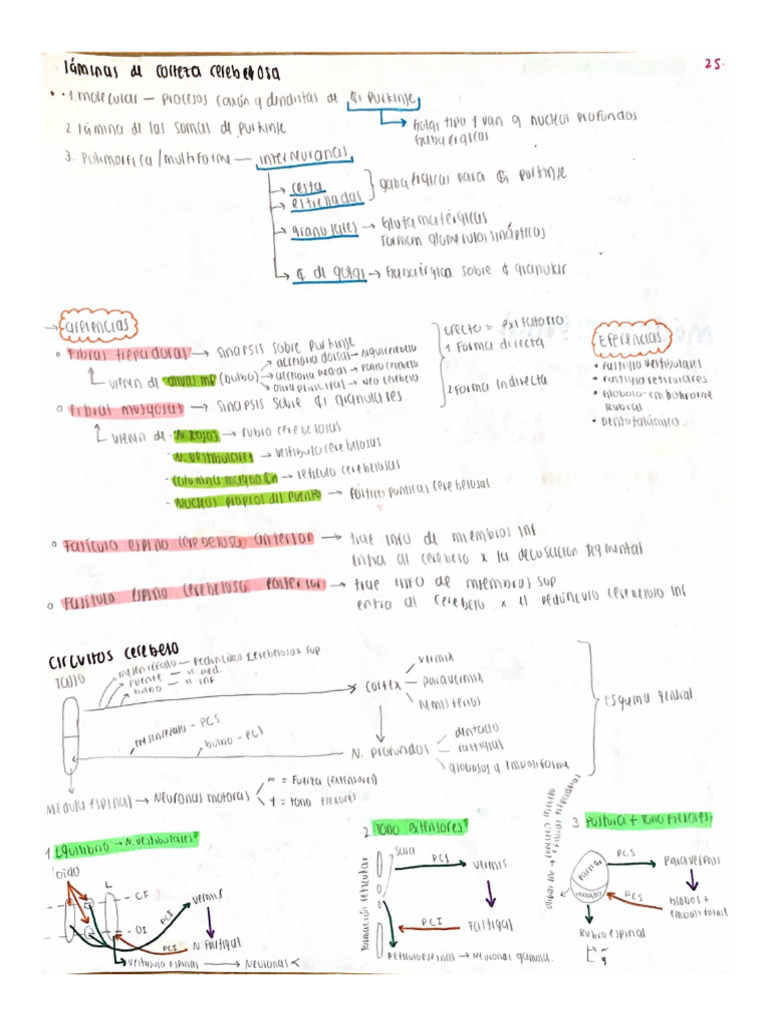 25
láminas de corteza cerebelosa
1. molecular — procesos (axón y dendritas de ₵i purkinje
Golgi tipo 1 van a nucleos profundos
Gabaérgicas
2 lámina de las somas de purkinje
3. Polimorfica/multiforme — interneuronas
cesta
estrelladas
gabaérgicas para ₵i purkinje
granulares → Glutamatérgicas
Forman glomerulos sinápticos
₵ de golgi → Gabaérgica sobre ₵ granular
aferencias
Fibras trepadoras → sinapsis sobre purkinje
vienen de olivas inf (bulbo)
accesoria dorsal → arquicerebelo
accesoria medial → paleo cerebelo
oliva principal → neo cerebelo
Fibras musgosas → sinapsis sobre ₵i granulares
Efecto = exitatorio
1 Forma directa
2 Forma indirecta
Eferencias
• Fastigio vestibulares
• Fastigio reticulares
• Globoso-emboliforme
Rubral
• Dentotalámico.
vienen de · N. Rojos → rubro cerebelosas
· N. vestibulares → vestibulo cerebelosas
→ reticulo cerebelosas
· Nucleos propios del puente → Pontico cerebelosas.
Fasículo espino cerebeloso anterior → trae info de miembros inf
entra al cerebelo x la decusación tegmental
Fasículo espino cerebeloso posterior → trae info de miembros sup
entra al cerebelo x el pedúnculo cerebeloso inf
circuitos cerebelo
Tallo
mesencéfalo — pedúnculos cerebelosos sup
Puente — " " med.
bulbo — " " inf
cortex
vermix
paravermix
hemisferios
mesencéfalo - PCS
bulbo - PCI
N. profundos
dentado
fastigial
globosos y emboliforme
Esquema general
Médula espinal → Neuronas motoras
α = Fuerza (extensores)
γ = tono flexores
1 Equilibrio → N. vestibulares
oído
L
CF
OI
PCS
vermis
PCI
N. Fastigial
vestibulo espinal → Neuronas α
2 Tono extensores
Formación reticular
PCS
vermis
PCI
Fastigial
Reticuloespinal → Neuronas gamma.
3 Postura + Tono flexores
PCS
Paravermis
PCS
Globos +
emboliforme
Rubro espinal